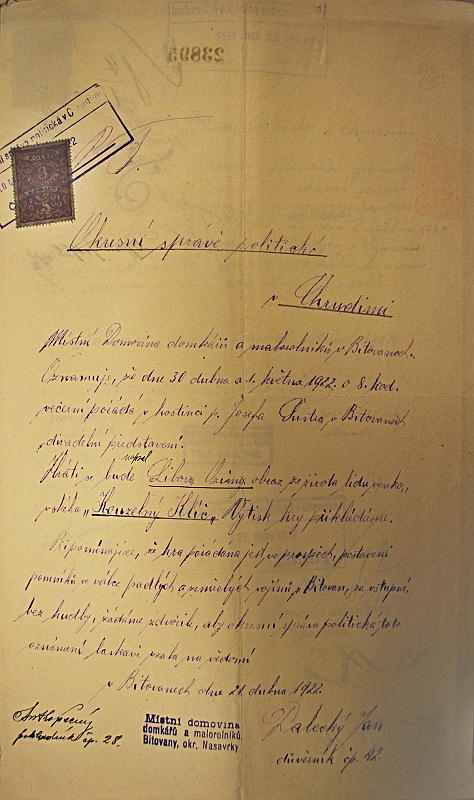 23895
P. T.
Okresní správě politické
v Chrudimi
Místní Domovina domkářů a malorolníků v Bitovanech.
Oznamuje, že dne 30 dubna a 1. května 1922 o 8. hod.
večerní pořádá v hostinci p. Josefa v Bitovanech
divadelní představení.
Hráti se bude napsal Libor obraz ze života lidu venko,
vského „Kouzelný Klíč„ Výtisk hry přikládáme.
Připomínajíce, že hra pořádána jest ve prospěch, postavení
pomníku ve válce padlých a zemřelých vojínů z Bitovan, za vstupné,
bez hudby, žádáme zdvořile, aby okresní správa politická toto
oznámení laskavě vzala na vědomí
v Bitovanech dne 21. dubna 1922.
Ant. Kopecký
pokladník čp. 28.
Místní domovina
domkářů a malorolníků,
Bítovany, okr. Nasavrky
Dalecký Jan
důvěrník čp. 42.